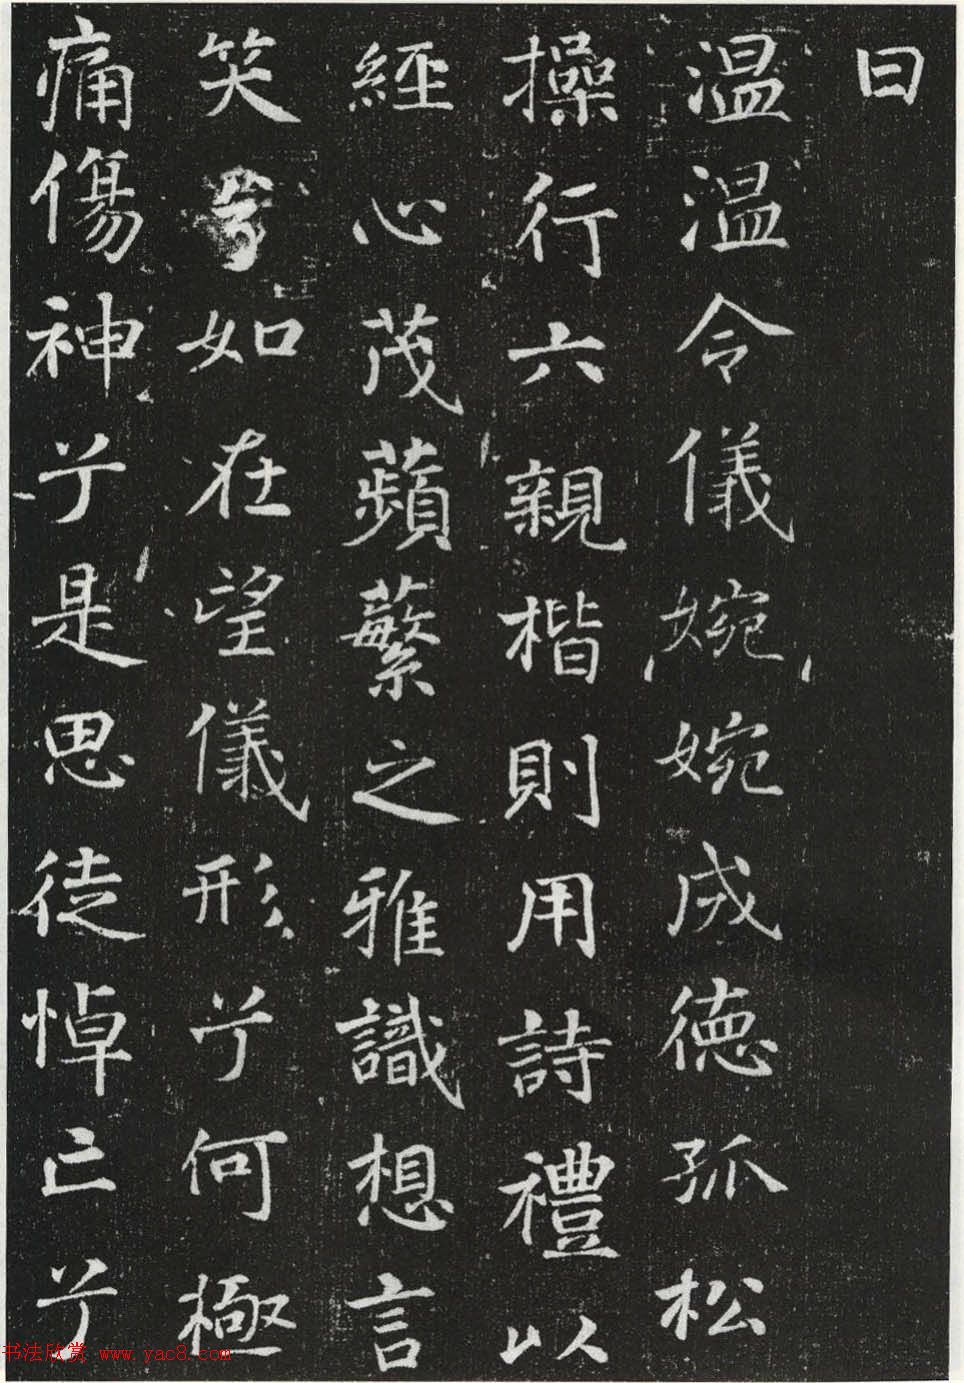 曰
温温令儀婉婉成德孤松
操行六親楷則用詩禮以
經心茂蘋蘩之雅識想言
笑兮如在望儀形兮何極
痛傷神兮是思徒悼亡兮
书法欣赏 www.yac8.com